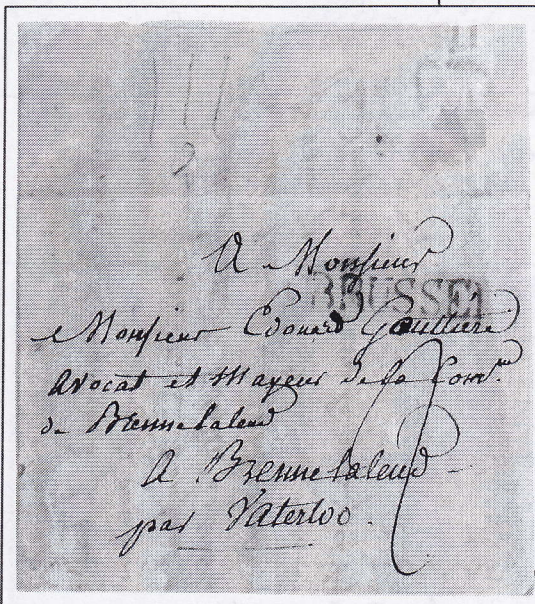 A Monsieur
BRUSSEL
Monsieur Edouard Gaulliere
Avocat et Mayeur de la Com.ne
de Brennelaleud
A Brennelaleud
par Vaterloo.